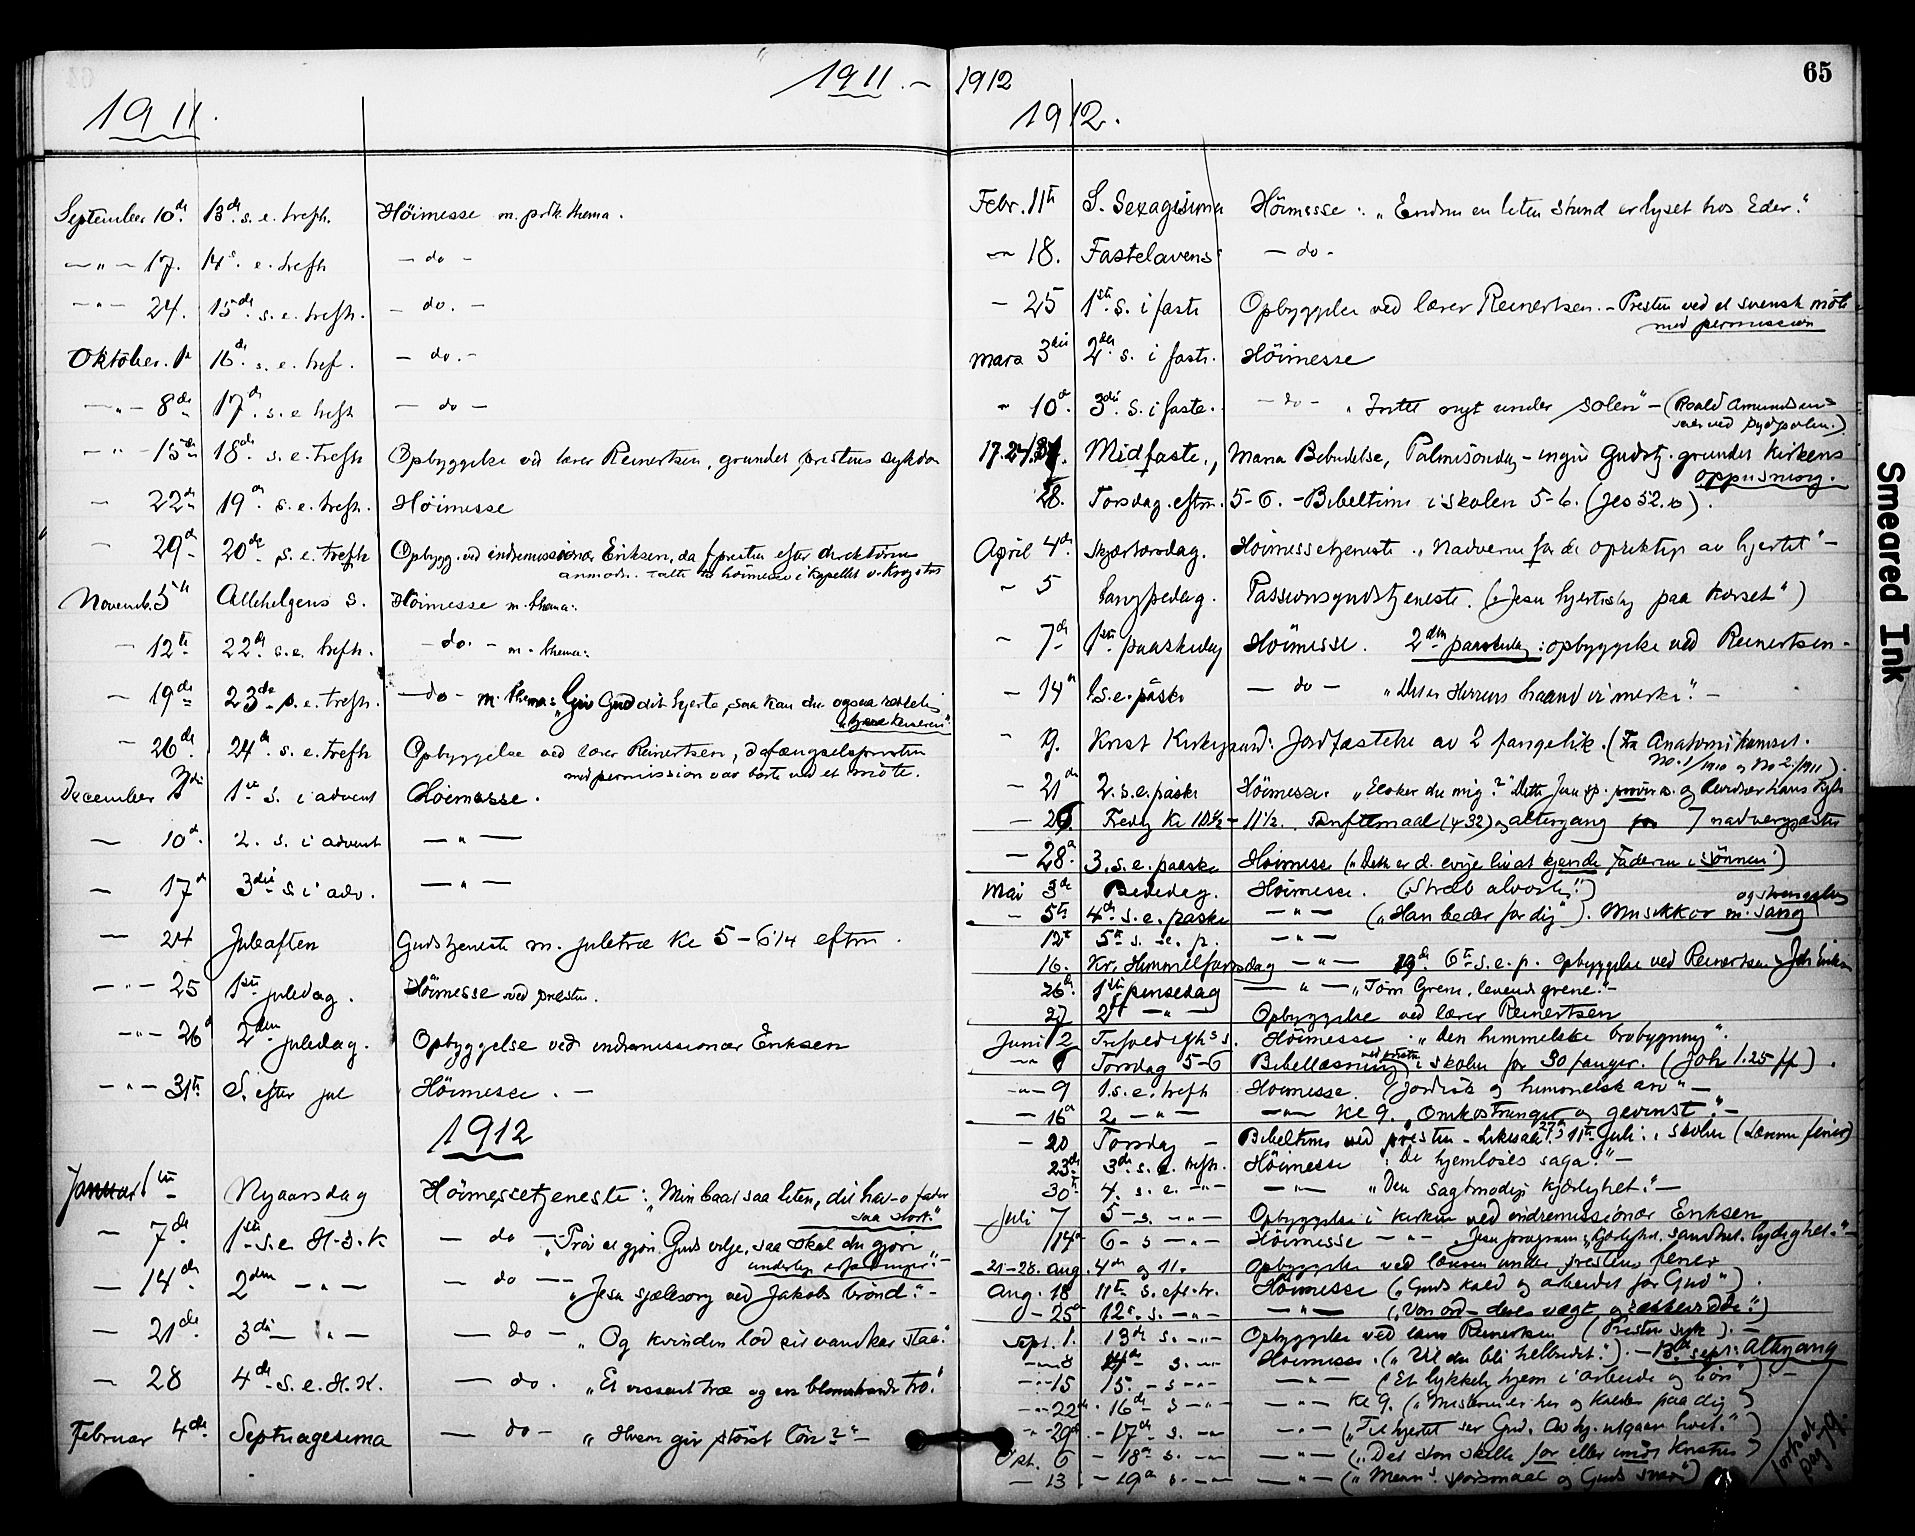 1911 – 1912
65
1911.
September 10de 13de s. e. trefh. Höimesse m. thema.
– " – 17. 14. s. e. trefh – do –
– " – 24. 15de s. e. trefh. – do. –
Oktober. 1 16de s. e. tref. – do. –
– " – 8de 17de s. e. trefh – do –
– " – 15de 18de s. e. trefh Opbyggelse ved lærer Reinertsen, grundet prestens sykdom
– 22de 19de s. e. trefh. Höimesse
– 29de 20de s. e. trefh Opbygg. ved indremissionær Eriksen, da presten efter direktörens
anmodn. talte höimesse i kapellet
Novemb. 5te Allehelgens S. Höimesse m. thema:
– 12te 22de s. e. trefh. – do. – m. thema:
– 19de 23de s. e. trefh. – do – m. thema: "Giv Gud dit hjerte, saa kan du ogsaa
– 26de 24de s. e. trefh Opbyggelse ved lærer Reinertsen, da fængselspresten
med permission var borte ved et möte.
December 3die 1ste S. i advent Höimesse.
– 10de 2. s. i advent – " –
– 17de 3die s i adv. – " –
– 24 Juleaften Gudstjeneste m. juletræ kl 5 – 6 1/4 eftm.
– " – 25 1ste juledag. Höimesse ved presten.
– " – 26de 2den juledag. Opbyggelse ved indremissionær Eriksen
– " – 31te S. efter jul Höimesse. –
1912
Januar 1ste Nyaarsdag Höimessetjeneste: "Min baat saa liten, dit hav – o fader
saa stort."
– 7de 1ste s. e H. 3. K – do – "Pröv at gjöre Guds vilje, saa skal du gjöre
underlige erfaringer." –
– 14de 2den – " – – do – "Jesu sjælesorg ved Jakobs brönd." –
– 21de 3die – " – – do – "Og kvinden lod sit vandkar staa."
– 28 4de s. e. H. K. – do. "Et vissent træ og en blomstrende tro."
Februar 4de Septuagesima – do – "Hvem gir störst lön?" –
1912.
Febr. 11te S. Sexagesima Höimesse: "Endnu en liten stund er lyset hos Eder."
– 18. Fastelavens – do –
– 25 1ste s. i faste Opbyggelse ved lærer Reinertsen. – Presten ved et svensk möte
med permission
Mars 3die 2den s. i faste. Höimesse
" 10de 3die s. i faste. – do – "Intet nyt under solen" – (Roald Amundsens
ved Sydpolen.)
17. 24. 31. Midfaste, Maria Bebudelse, Palmesöndag – ingen Gudstj. grundet kirkens
oppusning.
28. Torsdag. eftm. 5-6. – Bibeltime i skolen 5-6. (Jes 52.)
April 4de Skjærtorsdag. Höimessetjeneste. "Nadveren for de oprigtige av hjertet" –
– 5 Langfredag. Passionsgudstjeneste. ("Jesu hjerteslag paa korset")
– 7de 1ste paaskedag Höimesse. 2den paaskedag: opbyggelse ved Reinertsen –
– 14de 1 s. e. påske – do – "Det er Herrens haand vi merke." –
– 19. Krist Kirkegaard: Jordfæstelse av 2 fangelik. (Fra Anatomikamret.
No. 1/1910 og No 2/1911).
– 21de 2. s. e. påske Höimesse. "Elsker du mig?"
– 26. Fredag kl 10 1/2 – 11 1/2. Skriftemaal (4 32) og altergang 7 nadvergjæster
– 28de 3. s. e. paaske Höimesse ("Dette er d. evige liv at kjende Faderen i sönnen")
Mai 3de Bededag. Höimesse. ("Stræb alvorlig")
– 5te 4de s. e. påske – " – ("Han beder for dig"). Musikkor m. sang
12te 5te s. e. p. – " –
16. Kr. Himmelfartsdag – " – 19de 6te s. e. p. Opbyggelse ved Reinertsen
26de 1ste pinsedag – " – "Törre Grene, levende grene." –
27 2den – " – Opbyggelse ved lærer Reinertsen
Juni 2 Trefoldighs s. Höimesse: "Den himmelske brobygning".
– " 6 Torsdag 5-6 Bibellæsning ved presten i skolen for 30 fanger. (Joh 1. 25 ff).
– " – 9 1. s. e. trefh Höimesse. (Jordisk og himmelsk arv" –
– 16de 2. – " – – " – kl 9. "Omkostninger og gevinst." –
– 20 Torsdag – Bibeltime ved presten – 27de 11te juli: i skolen
23de 3de s. e. trefh. Höimesse: "De hjemlöses saga." –
30te 4. s. e. – " – – " – "Den sagtmodige kjærlighet." –
Juli 7 5 – s. – " – Opbyggelse i kirken ved indremissionær Eriksen
" 14de 6 – s – " – Höimesse – " – "Jesu program: Kjærlighet, sandhet, lydighet." –
21 – 28. aug. 4de og 11. Opbyggelse ved læreren under prestens ferier
Aug. 18 11te s. eft. tr. Höimesse ("Guds kald og arbeidet for Gud").
– 25de 12. s. – " – – " – ("Vore ord – deres vægt og rækkevidde.")
Sept. 1. 13de s. – " – Opbyggelse ved lærer Reinertsen (Presten syk). –
– " – 8 14de s. – " – Höimesse. ("Vil du bli helbredet"). – 13de sept: Altergang
– " – 15 15. – s – " – – " – ("Et lykkelig hjem i arbeide og bön") –
– " – 22de 16de s – " – – " – kl 9. ("Mesteren er her og kalder paa dig")
– " – 29de – 17de s. – " – – " – ("Til hjertet ser Gud.
Okt. 6 – 18de s. – " – – " – ("Det som skille for eller imot Kristus")
– 13 – 19de s. – " – – " – (" og Guds svar")
fortsat
pag 79.
Smeared Ink